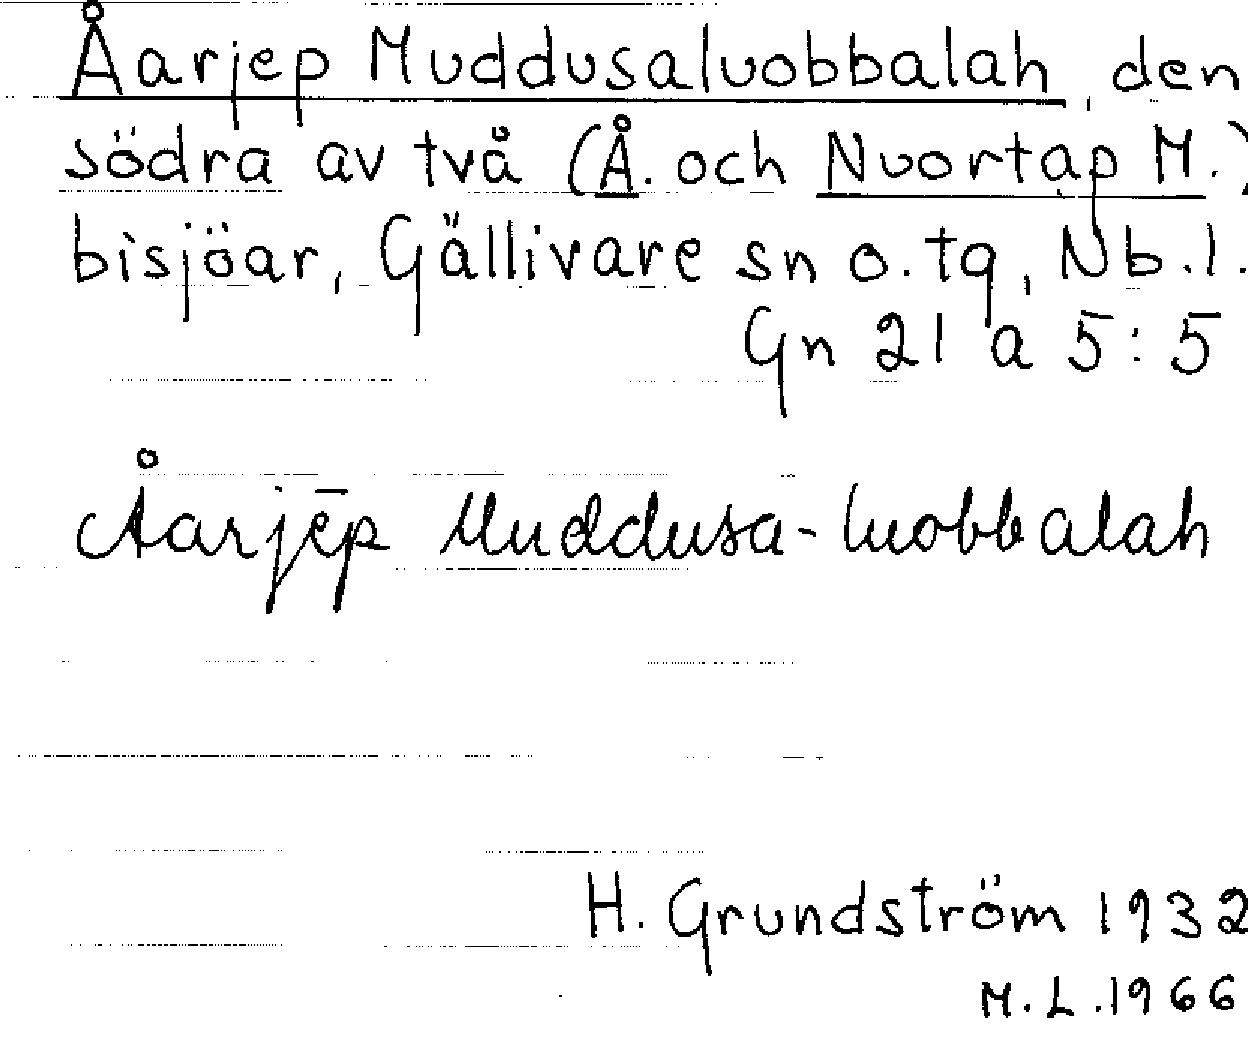 Åarjep Muddusaluobbalah, den
södra av två (Å. och Nuortap M.)
bisjöar, Gällivare sn o. tg, Nb.l.
Gn 21 a 5:5
Åarjēp Muddusa-luobbalah
H. Grundström 1932
M.L.1966